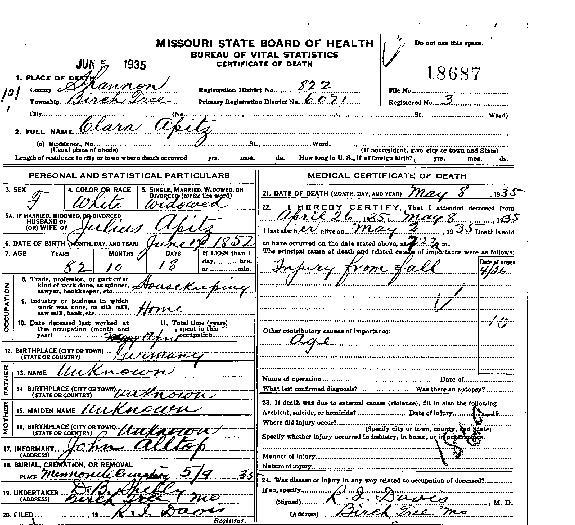 MISSOURI STATE BOARD OF HEALTH
BUREAU OF VITAL STATISTICS
CERTIFICATE OF DEATH
Do not use this space.
JUN 5 1935
18687
1. PLACE OF DEATH
County Shannon Registration District No. 822 File No.
Township Birch Tree Primary Registration District No. 6071 Registered No. 3
City (No. St. Ward)
2. FULL NAME Clara Apitz
(a) Residence, No. St. Ward.
(Usual place of abode) (If nonresident, give city or town and State)
Length of residence in city or town where death occurred yrs. mos. ds. How long in U. S., if of foreign birth? yrs. mos. ds.
PERSONAL AND STATISTICAL PARTICULARS
3. SEX F
4. COLOR OR RACE White
5. SINGLE, MARRIED, WIDOWED, OR DIVORCED (write the word) Widowed
5A. IF MARRIED, WIDOWED, OR DIVORCED
HUSBAND OF
(OR) WIFE OF Julius Apitz
6. DATE OF BIRTH (MONTH, DAY, AND YEAR) June 1852
7. AGE YEARS MONTHS DAYS If LESS than 1
82 10 18
OCCUPATION
8. Trade, profession, or particular kind of work done, as spinner, sawyer, bookkeeper, etc. Housekeeping
9. Industry or business in which work was done, as silk mill, saw mill, bank, etc. Home
10. Date deceased last worked at this occupation (month and year)
11. Total time (years) spent in this occupation
12. BIRTHPLACE (CITY OR TOWN)
(STATE OR COUNTRY) Germany
FATHER
13. NAME Unknown
14. BIRTHPLACE (CITY OR TOWN)
(STATE OR COUNTRY) Unknown
MOTHER
15. MAIDEN NAME Unknown
16. BIRTHPLACE (CITY OR TOWN)
(STATE OR COUNTRY) Unknown
17. INFORMANT John Alltop
(ADDRESS)
18. BURIAL, CREMATION, OR REMOVAL
PLACE 5/9 35
19. UNDERTAKER
(ADDRESS) Birch Tree Mo
20. FILED 19 R. I. Davis
Registrar.
MEDICAL CERTIFICATE OF DEATH
21. DATE OF DEATH (MONTH, DAY, AND YEAR) May 8 1935
22. I HEREBY CERTIFY, That I attended deceased from
April 26 35 May 8 1935
I last saw her alive on May 1935 Death is said
to have occurred on the date stated above, at m.
The principal cause of death and related causes of importance were as follows:
Date of onset
Injury from fall
Other contributory causes of importance:
Age
Name of operation Date of
What test confirmed diagnosis? Was there an autopsy?
23. If death was due to external causes (violence), fill in also the following:
Accident, suicide, or homicide? Date of injury
Where did injury occur?
(Specify city or town, county, and State)
Specify whether injury occurred in industry, in home, or in public place.
Manner of injury
Nature of injury
24. Was disease or injury in any way related to occupation of deceased?
If so, specify
(Signed) R. I. Davis, M. D.
(Address) Birch Tree Mo